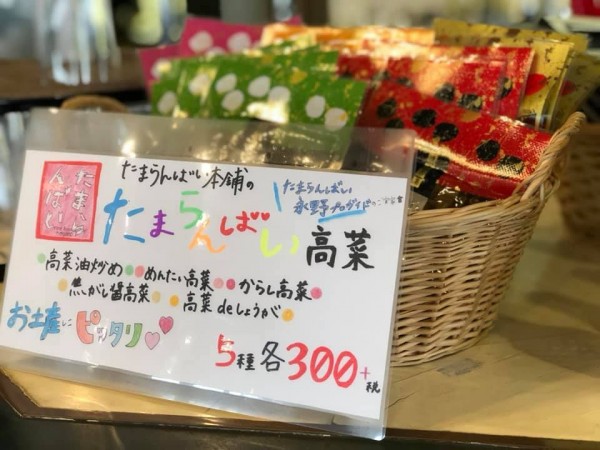 たまらんばい本舗の
たまらんばい高菜
たまらんばい
高菜油炒め めんたい高菜 からし高菜
焦がし醤高菜 高菜deしょうが
お土産にピッタリ
5種各300+税